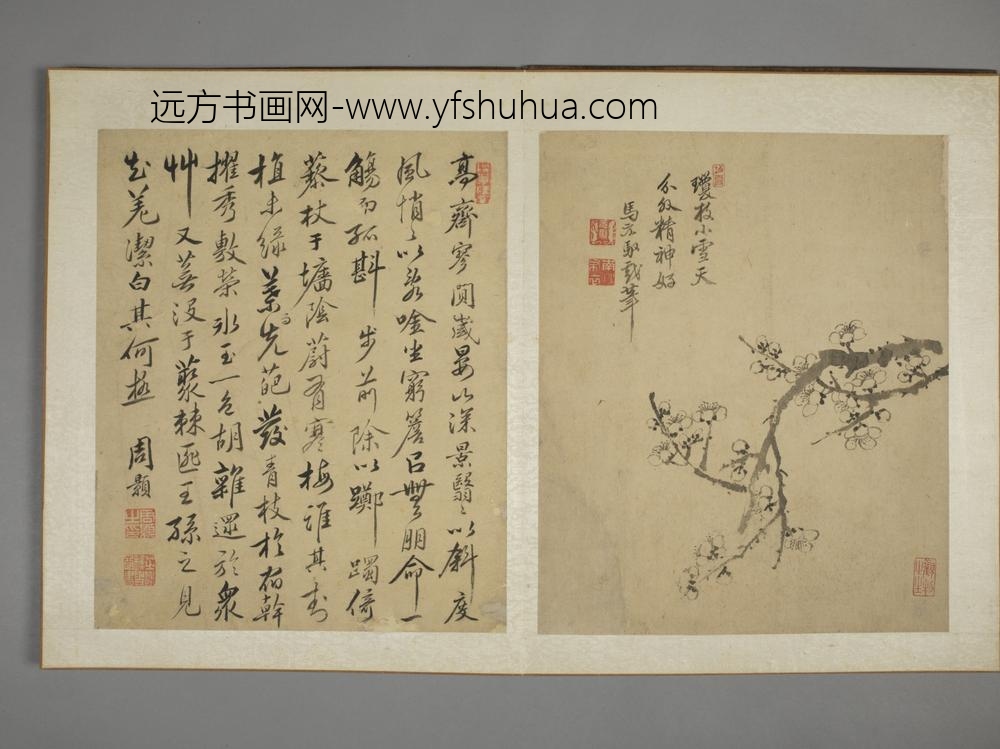 远方书画网-www.yfshuhua.com
高齋寥闃歲晏山深景翳〻以斜度
風悄〻以唫坐窮簷㠯無朋命一
觴而孤斟步前除以躑躅倚
藜杖于墻陰蔚有寒梅誰其封
植未綠葉而先葩發青枝於宿幹
擢秀敷榮冰玉一色胡雜遝於衆
艸又蕪沒于藂棘匪王孫之見
知羌潔白其何極 周顥
瓊枝小雪天
分外精神好
馬元馭戲筆